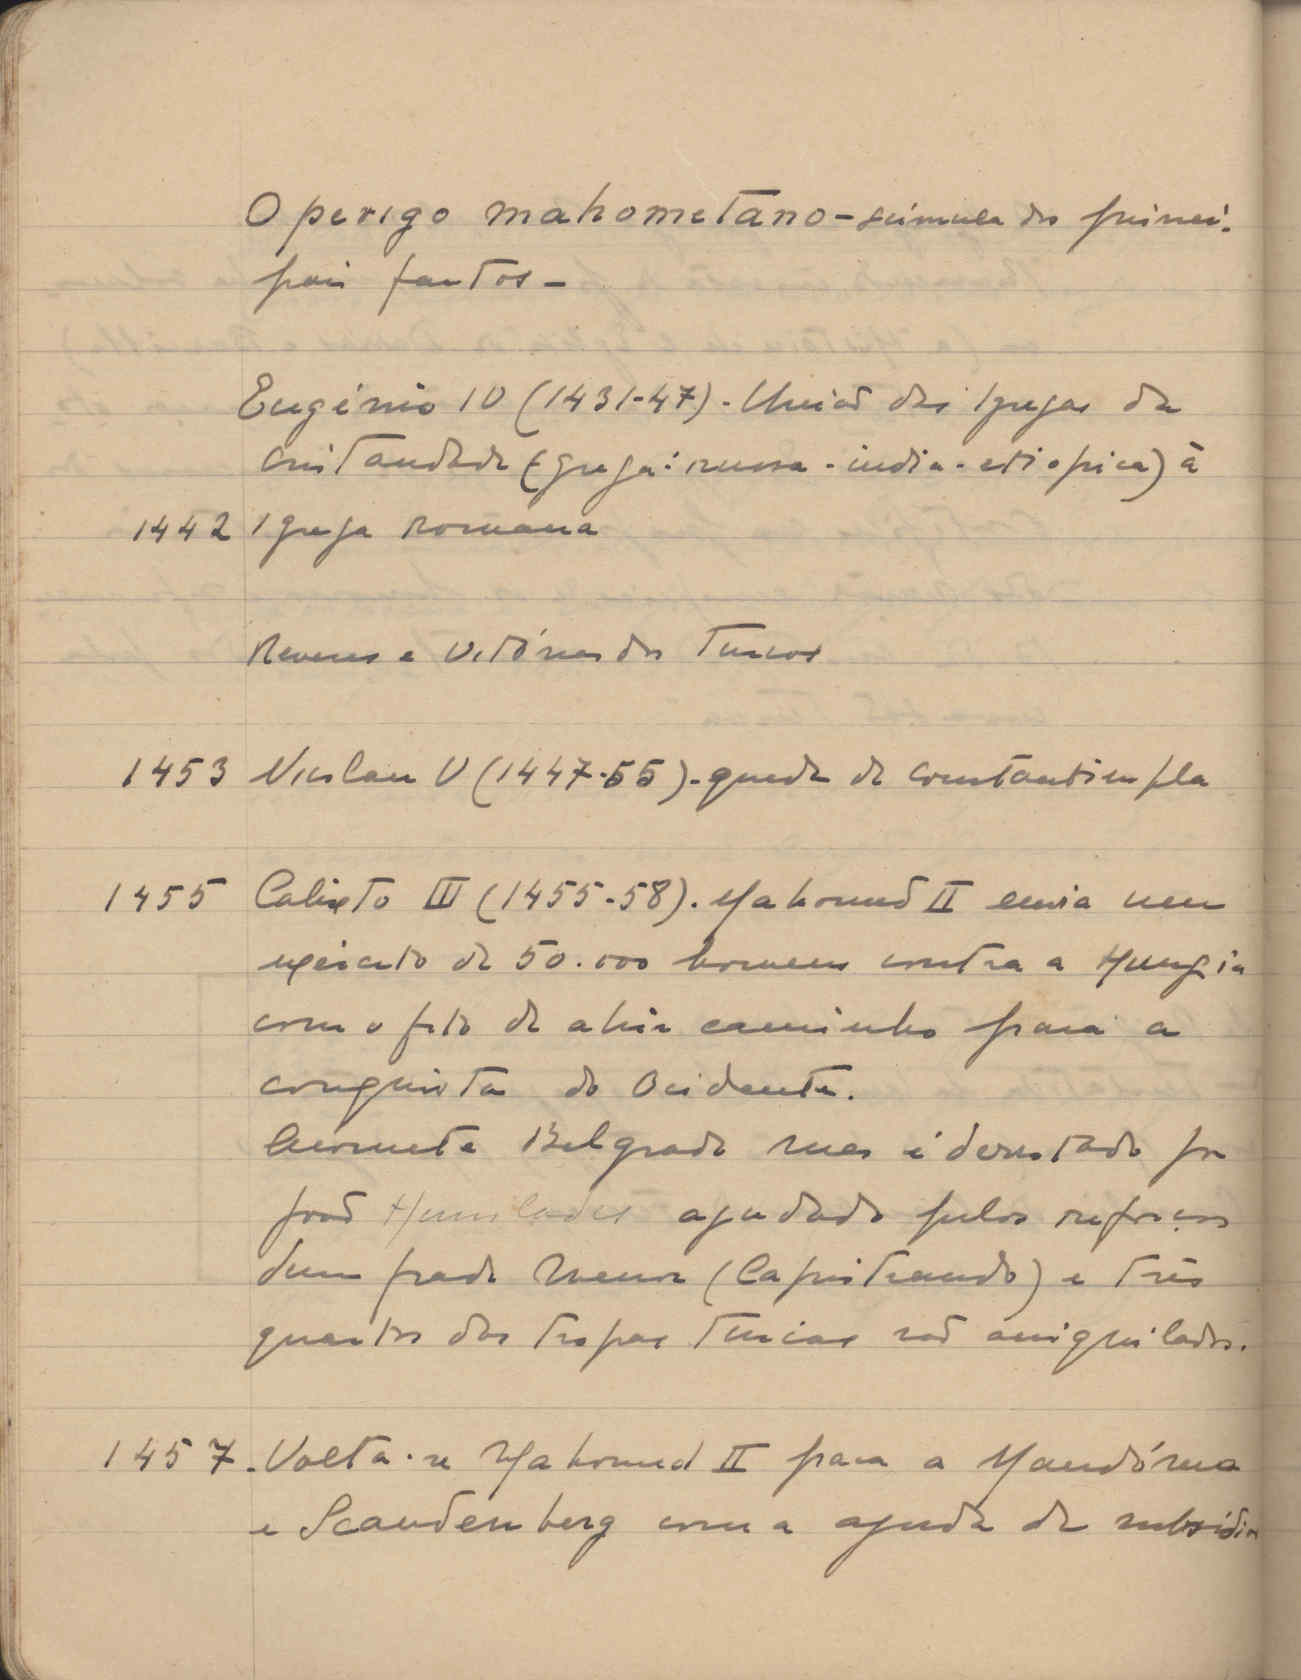 O perigo mahometano - súmula dos princi-
pais factos -
Eugénio IV (1431-47). União das Igrejas da
cristandade (grega - russa - india - etiopica) à
1442 Igreja Romana
Reveses e Vitórias dos Turcos
1453 Nicolau V (1447-55). queda de Constantinopla
1455 Calixto III (1455-58). Mahomed II envia um
exército de 50.000 homens contra a Hungria
com o fito de abrir caminho para a
conquista do Ocidente.
Acomete Belgrado mas é derrotado por
João ajudado pelos reforços
dum frade Menor (Capistrano) e três
quartos das tropas turcas são aniquilados.
1457. Volta-se Mahomed II para a
e Scandenberg com a ajuda de subsidios